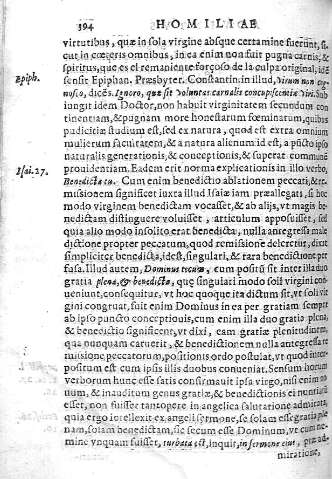 394 HOMILIAE
virtutibus, quæ in sola virgine absque certamine fuerunt, si-
cut in cœteris omnibus, in ea enim non fuit pugna carnis, &
spiritus, quæ est el remaniente forçoso de la culpa original, idē
Epiph. sensit Epiphan. Præsbyter. Constantin. in illud, virum non cog-
nosco, dicēs. Ignoro, quæ sit voluntas carnalis concupiscentiæ viri. Sub
iungit idem Doctor, non habuit virginitatem secundum con
tinentiam, & pugnam more honestarum fœminarum, quibus
pudicitiæ studium est, sed ex natura, quod est extra omnium
mulierum facultatem, & a natura alienum id est, a pūcto ipso
naturalis generationis, & conceptionis, & superat communē
Isai. 27. prouidentiam. Eadem erit norma explicationis in illo verbo,
Benedicta tu. Cum enim benedictio ablationem peccati, & re-
missionem significet iuxta illud Isaiæ iam præallegati, si hoc
modo virginem benedictam vocasset, & ab alijs, vt magis be-
nedictam distinguere voluisset, articulum apposuisset, sed
quia alio modo insolito erat benedicta, nulla antregressa male
dictione propter peccatum, quod remissione deleretur, dixit
simpliciter benedicta, idest, singulari, & rara benedictione per
fusa. Illud autem, Dominus tecum, cum positū sit inter illa duo
gratia plena, & benedicta, quę singulari modo soli virgini con-
ueniunt, consequitur, vt hoc quoque ita dictum sit, vt soli vir-
gini congruat, fuit enim Dominus in ea per gratiam semper
ab ipso puncto conceptionis, cum enim illa duo gratia plena,
& benedictio significent, vt dixi, eam gratiæ plenitudinem,
qua nunquam caruit, & benedictionem nulla antegressa re
missione peccatorum, positionis ordo postulat, vt quod inter
positum est cum ipsis illis duobus conueniat. Sensum horum
verborum hunc esse satis confirmauit ipsa virgo, nisi enim no
uum, & inauditum genus gratiæ, & benedictionis ei nuntiatū
esset, non fuisset tantopere in angelica salutatione admirata,
quia ergo intellexit ex angeli sermone, se solam esse gratia ple
nam, solam benedictam, sic secum esse Dominum, vt cum ne-
mine vnquam fuisset, turbata est, inquit, in sermone eius, præ ad-
miratione,